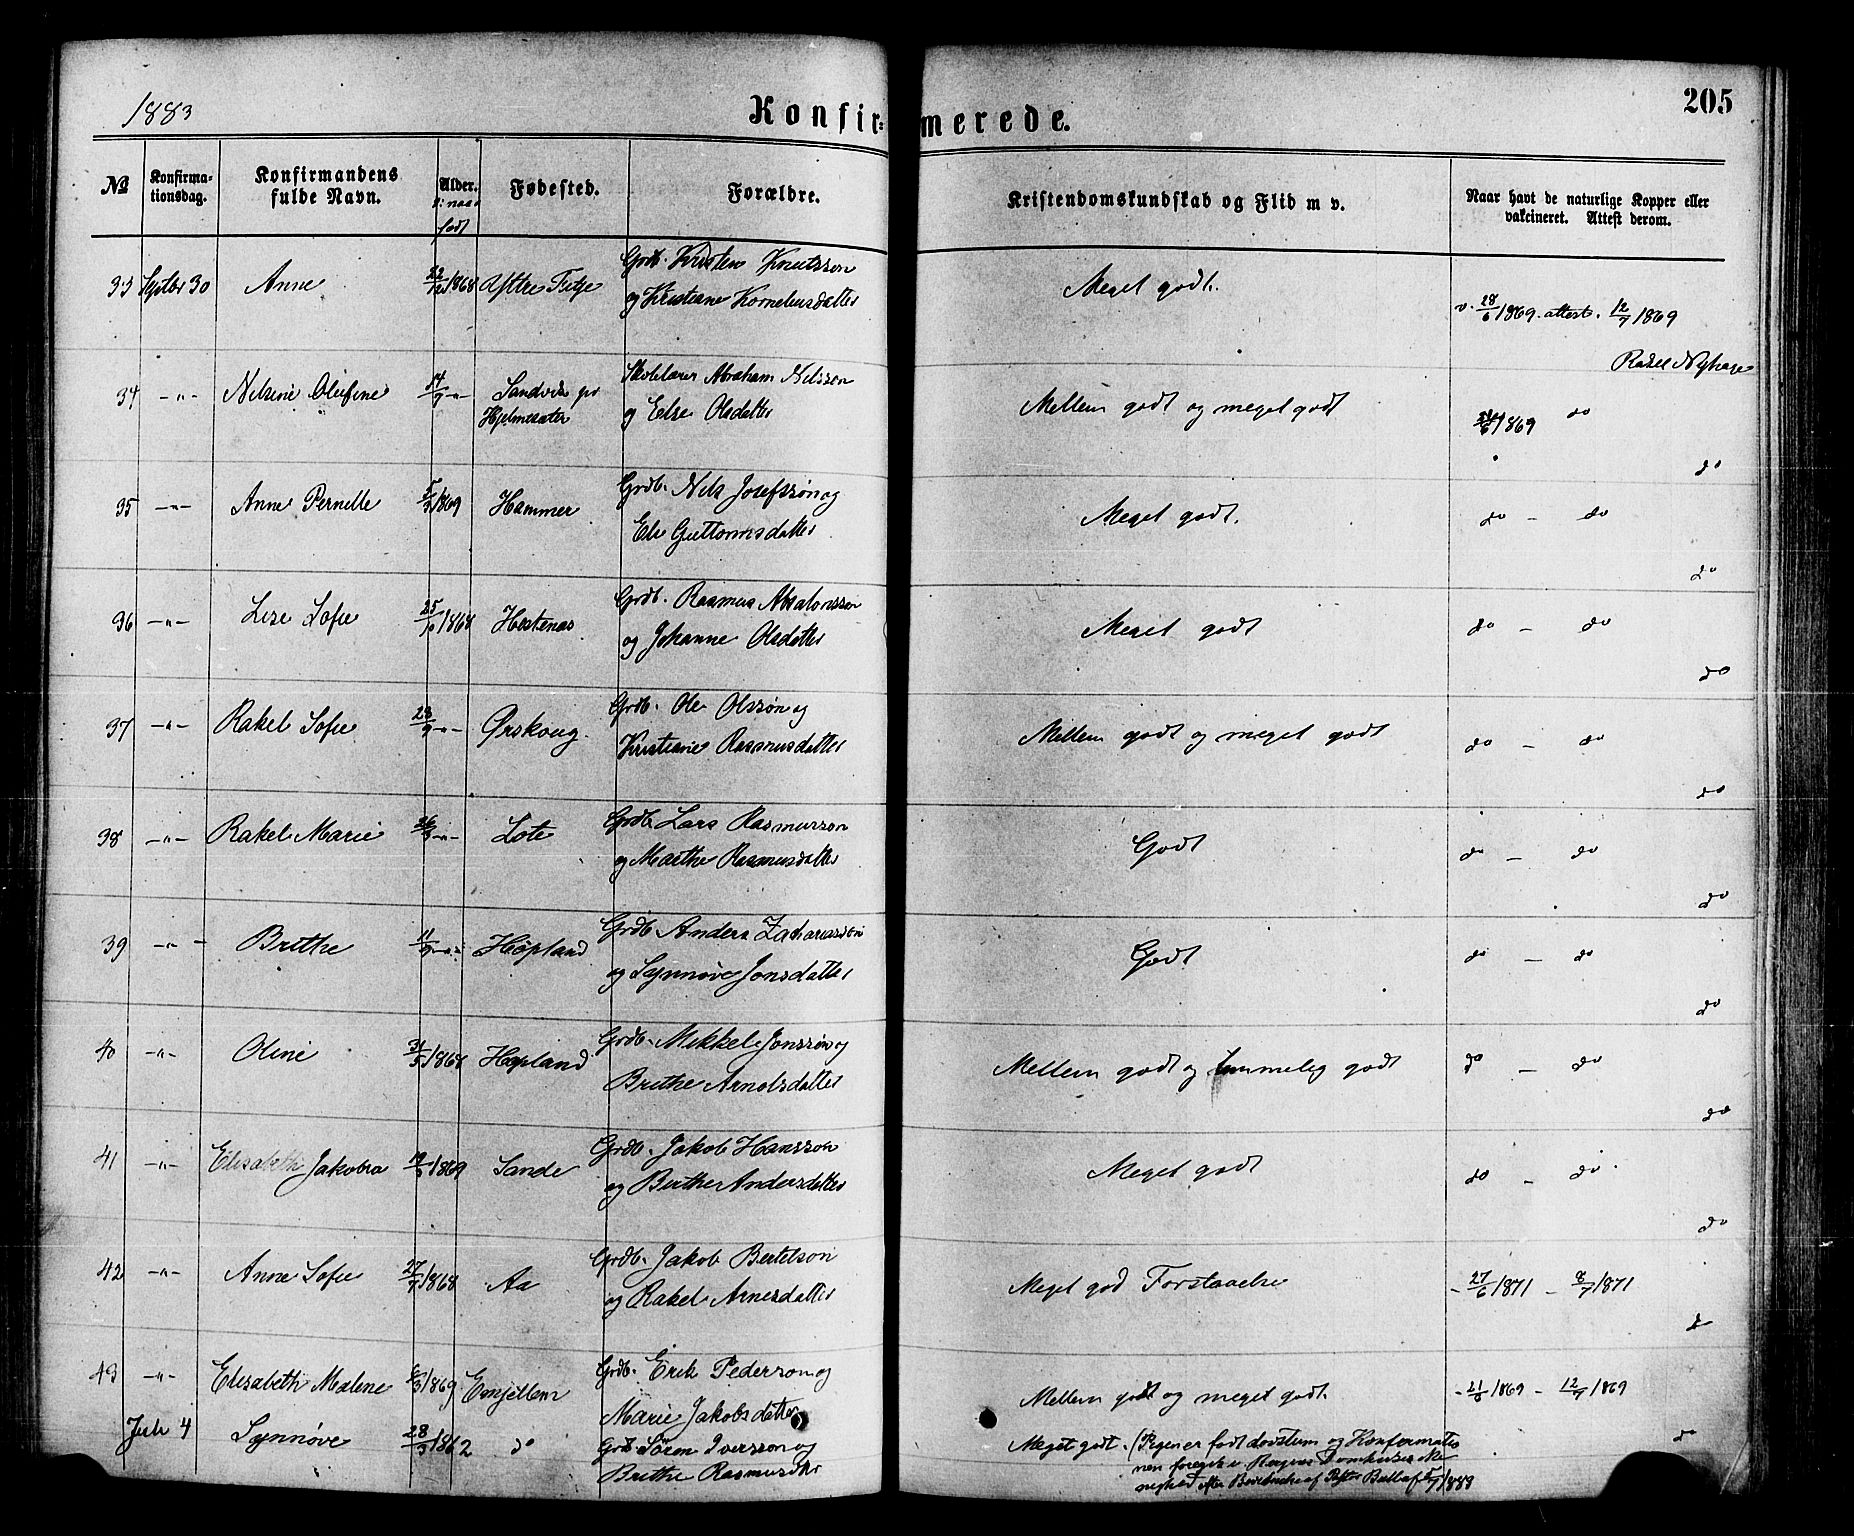 1883
Konfir- merede.
205
No
Konfirma-
tionsdag.
Konfirmandens
fulde Navn.
Alder.
født
Fødested.
Forældre.
Kristendomskundskab og Flid m v.
Naar havt de naturlige Kopper eller
vakcineret. Attest derom.
33 Septbr 30 Anne 22/12 1868 Øftre Fitje Grdb. Kristen Knutssøn
og Kristiane Korneliusdatter
Meget godt. v. 28/6 1869. attest. 12/7 1869
34 -"- Nilsine Olufine 14/9 -"- Sandvik pr
Hjelmesæter
Skolelærer Abraham Nilssøn
og Else Olsdatter
Mellem godt og meget godt 1869 do
do
35 -"- Anne Pernille 5/3 1869 Hammer Grdb. Nils Josefssøn og
Eli Guttormsdatter
Meget godt. do - do
do
36 -"- Lise Sofie 25/10 1868 Hestenæs Grdb. Rasmus Absalonssøn
og Johanne Olsdatter
Meget godt do - do
do
37 -"- Rakel Sofie 28/9 -"- Ørskoug. Grdb. Ole Olssøn og
Kristiane Rasmusdatter
Mellem godt og meget godt do - do
do
38 -"- Rakel Marie -"- Lote Grdb. Lars Rasmussøn
og Marthe Rasmusdatter
Godt do - do
do
39 -"- Brithe 11/9 -"- Hopland Grdb. Anders Zachariassøn
og Synnøve Jonsdatter
Godt do - do
do
40 -"- Oline 31/5 1868 Hopland Grdb. Mikkel Jonssøn og
Brithe Arnoldsdatter
Mellem godt og temmelig godt do - do
do
41 -"- Elisabeth Jakobia 1869 Sande Grdb. Jakob Hanssøn
og Berthe Andersdatter
Meget godt do - do.
do
42 -"- Anne Sofie 27/7 1868 Aa Grdb. Jakob Bertelsøn
og Rakel Arnesdatter
Meget god Forstaaelse - 27/6 1871 - 8/7 1871
43 -"- Elisabeth Malene 1869 Emjellem Grdb. Erik Pedersøn og
Marie Jakobsdatter
Mellem godt og meget godt. - 21/6 1869 - 12/7 1869
Juli 4 Synnøve 28/3 1862 do Grdb. Søren Iverssøn og
Brithe Rasmusdtr
Meget godt. (Pigen er født døvstum og Konfirmatio
nen foregik i Bergens Domkirkes Me
nighed efter 1883
do